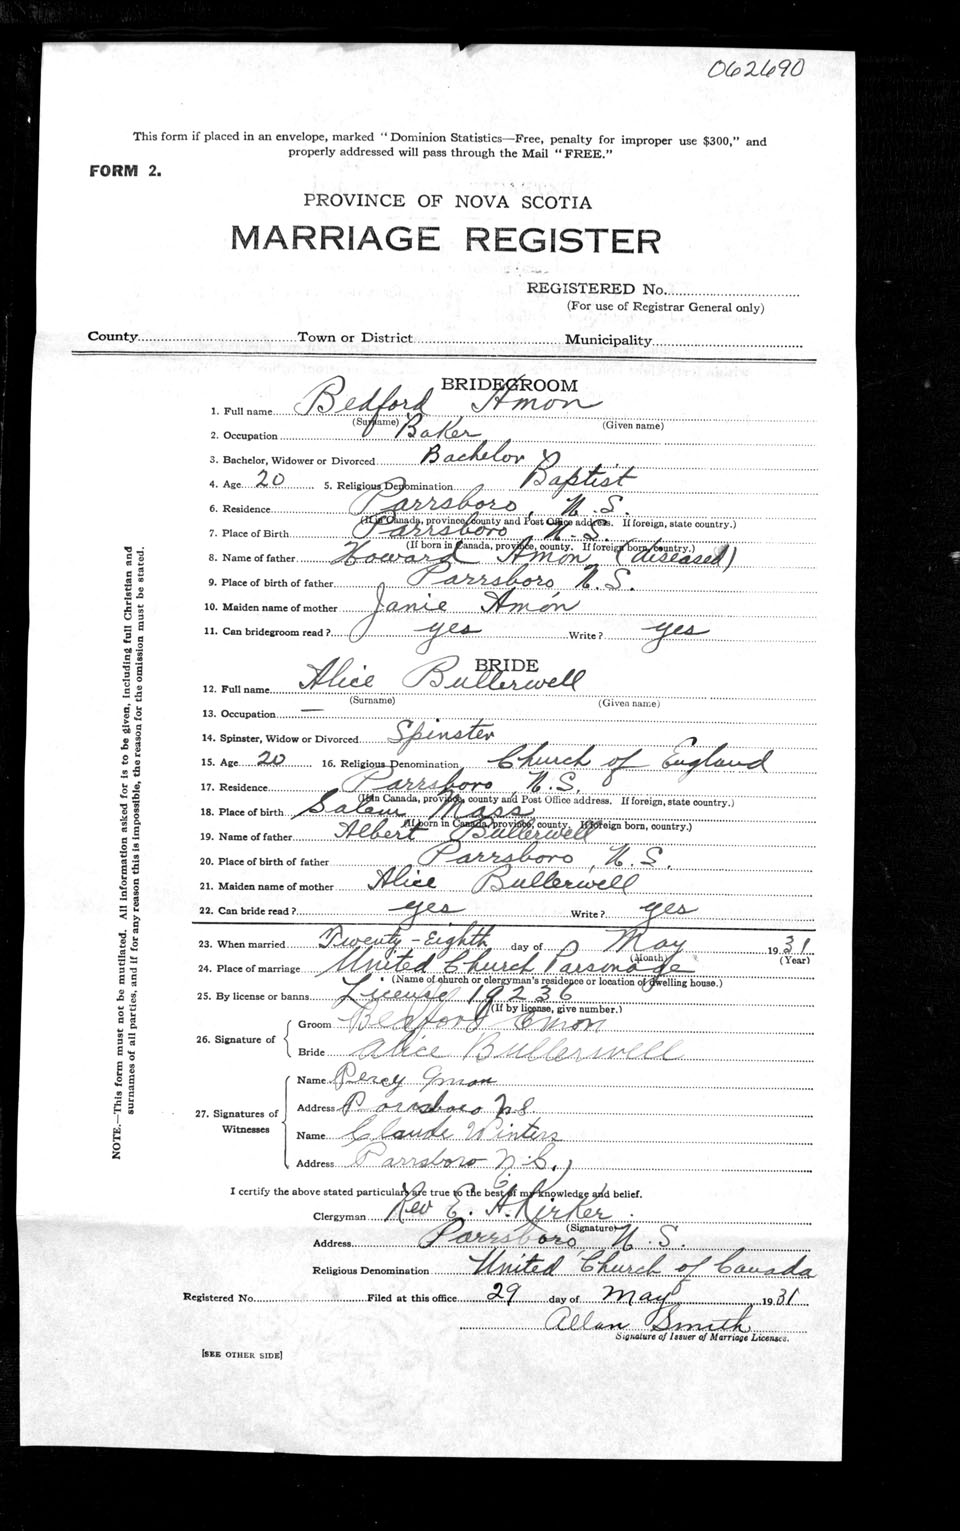 062690
This form if placed in an envelope, marked "Dominion Statistics—Free, penalty for improper use $300," and
properly addressed will pass through the Mail "FREE."
FORM 2.
PROVINCE OF NOVA SCOTIA
MARRIAGE REGISTER
REGISTERED No.
(For use of Registrar General only)
County Town or District Municipality
BRIDEGROOM
1. Full name Bedford Amon
(Surname) (Given name)
2. Occupation Baker
3. Bachelor, Widower or Divorced Bachelor
4. Age 20 5. Religious Denomination Baptist
6. Residence Parrsboro, N.S.
(If in Canada, province, county and Post Office address. If foreign, state country.)
7. Place of Birth Parrsboro N.S.
(If born in Canada, province, county. If foreign born, country.)
8. Name of father Howard Amon (diseased)
9. Place of birth of father Parrsboro N.S.
10. Maiden name of mother Janie Amon
11. Can bridegroom read? yes Write? yes
BRIDE
12. Full name Alice Bullerwell
(Surname) (Given name)
13. Occupation —
14. Spinster, Widow or Divorced Spinster
15. Age 20 16. Religious Denomination Church of England
17. Residence Parrsboro N.S.
(If in Canada, province, county and Post Office address. If foreign, state country.)
18. Place of birth Salem Mass
(If born in Canada, province, county. If foreign born, country.)
19. Name of father Albert Bullerwell
20. Place of birth of father Parrsboro, N.S.
21. Maiden name of mother Alice Bullerwell
22. Can bride read? yes Write? yes
23. When married Twenty-Eighth day of May 1931
(Month) (Year)
24. Place of marriage United Church Parsonage
(Name of church or clergyman's residence or location of dwelling house.)
25. By license or banns License 19236
(If by license, give number.)
26. Signature of
Groom Bedford Emon
Bride Alice Bullerwell
27. Signatures of Witnesses
Name Percy Amon
Address Parrsboro N.S.
Name Claude Winters
Address Parrsboro N.S.
I certify the above stated particulars are true to the best of my knowledge and belief.
Clergyman Rev E. A. Kirker
(Signature)
Address Parrsboro N.S.
Religious Denomination United Church of Canada
Registered No. Filed at this office 29 day of May 1931
Allan Smith
Signature of Issuer of Marriage Licenses.
[SEE OTHER SIDE]
NOTE.—This form must not be mutilated. All information asked for is to be given, including full Christian and
surnames of all parties, and if for any reason this is impossible, the reason for the omission must be stated.